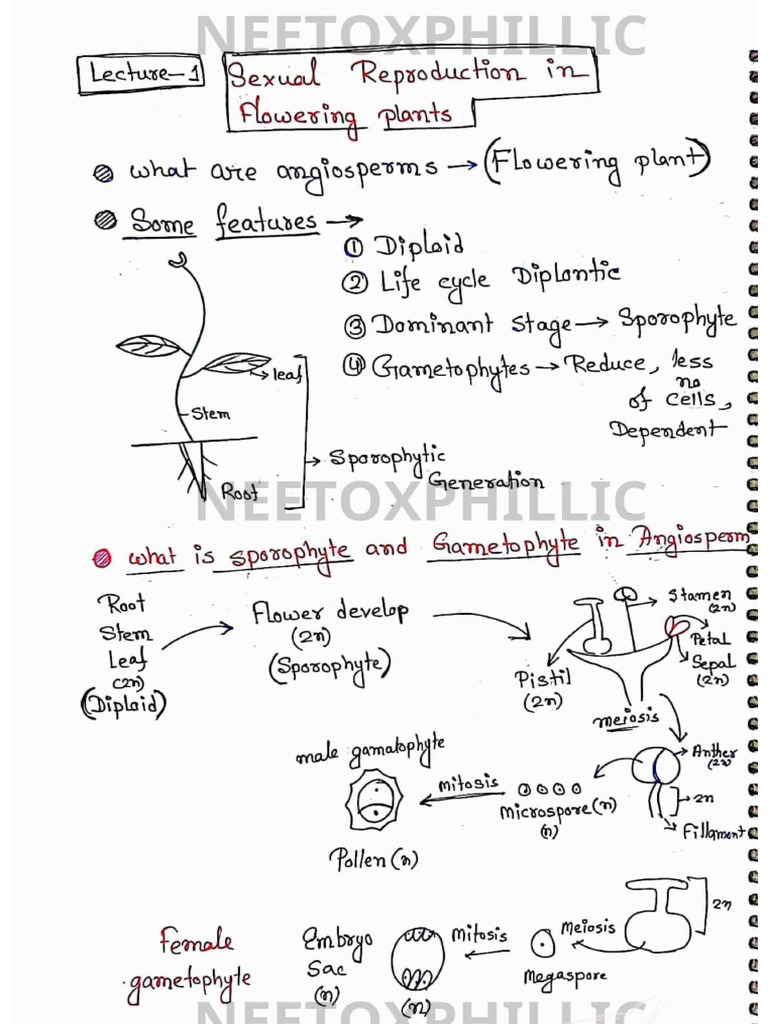 NEETOXPHILLIC
Lecture-1
Sexual Reproduction in
Flowering plants
what are angiosperms → (Flowering plant)
Some features →
① Diploid
② Life cycle Diplontic
③ Dominant stage → Sporophyte
④ Gametophytes → Reduce, less
no
of cells,
Dependent
leaf
Stem
Root
→ Sporophytic
Generation
NEETOXPHILLIC
what is sporophyte and Gametophyte in Angiosperm
Root
Stem
Leaf
(2n)
(Diploid)
Flower develop
(2n)
(Sporophyte)
Stamen
(2n)
Petal
Sepal
(2n)
Pistil
(2n)
meiosis
Anther
(2n)
2n
Fillament
Microspore (n)
(n)
mitosis
male gamatophyte
Pollen (n)
2n
Meiosis
Megaspore
Mitosis
(n)
Embryo
Sac
(n)
Female
gametophyte
NEETOXPHILLIC